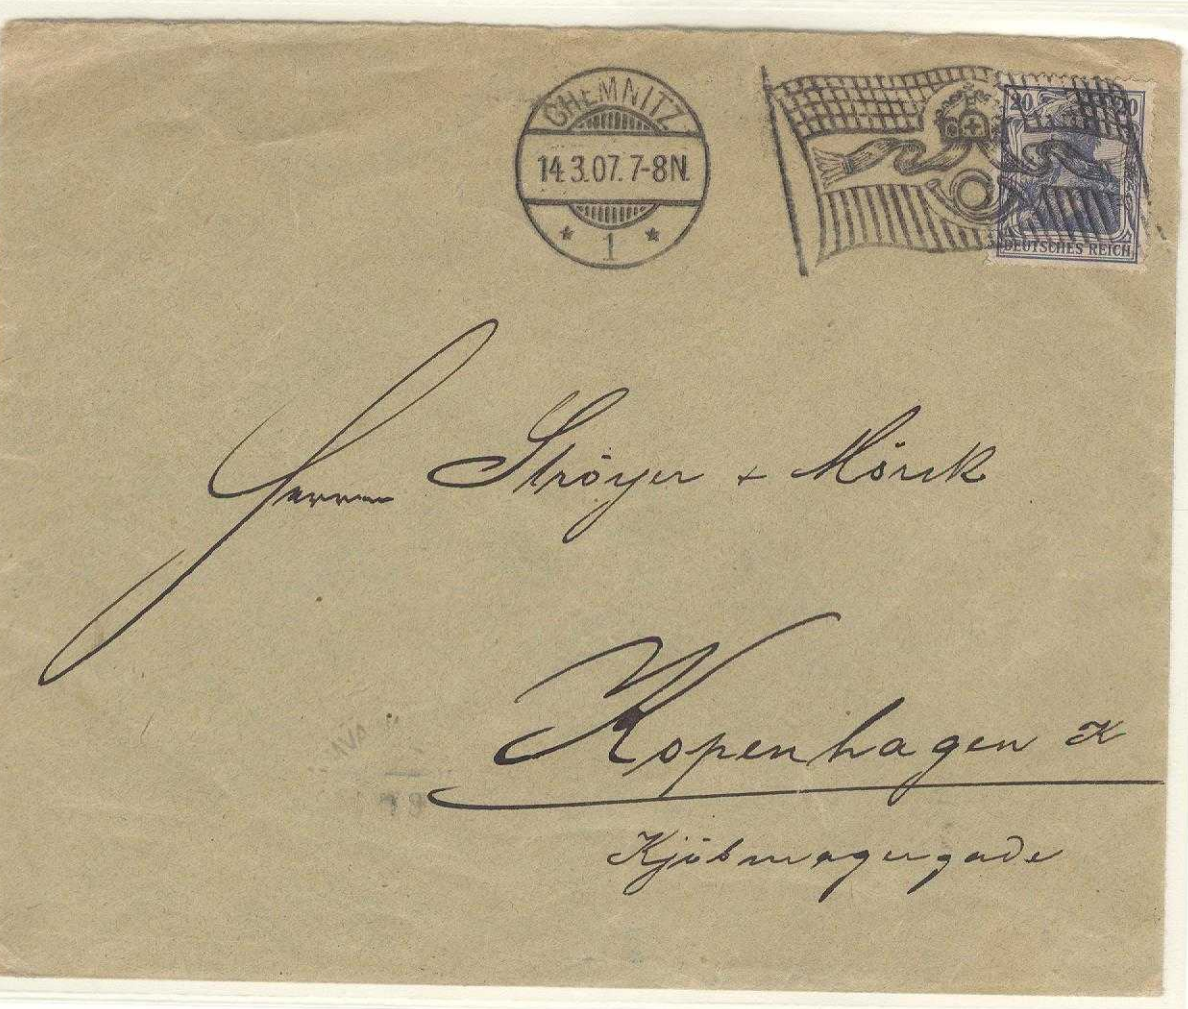 CHEMNITZ
14.3.07. 7-8N.
* 1 *
20 20
DEUTSCHES REICH
Herren Ströyer + Mörck
Kopenhagen K
Kjöbmagergade